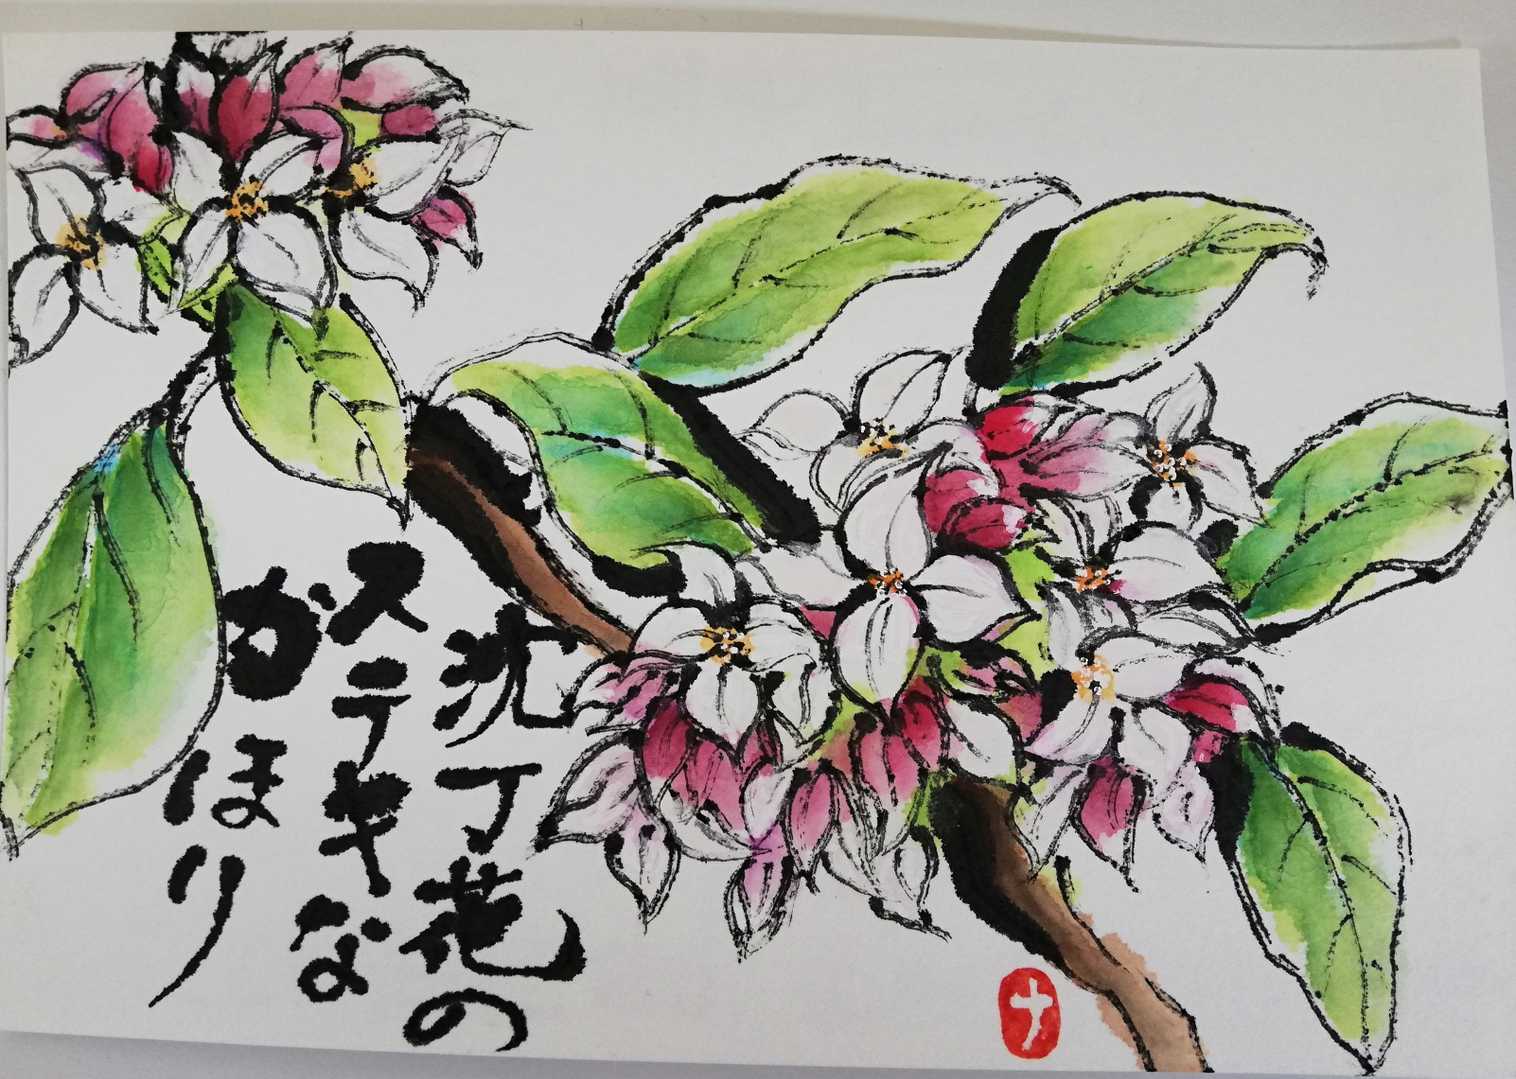 沈丁花の
ステキな
がほり
ナ